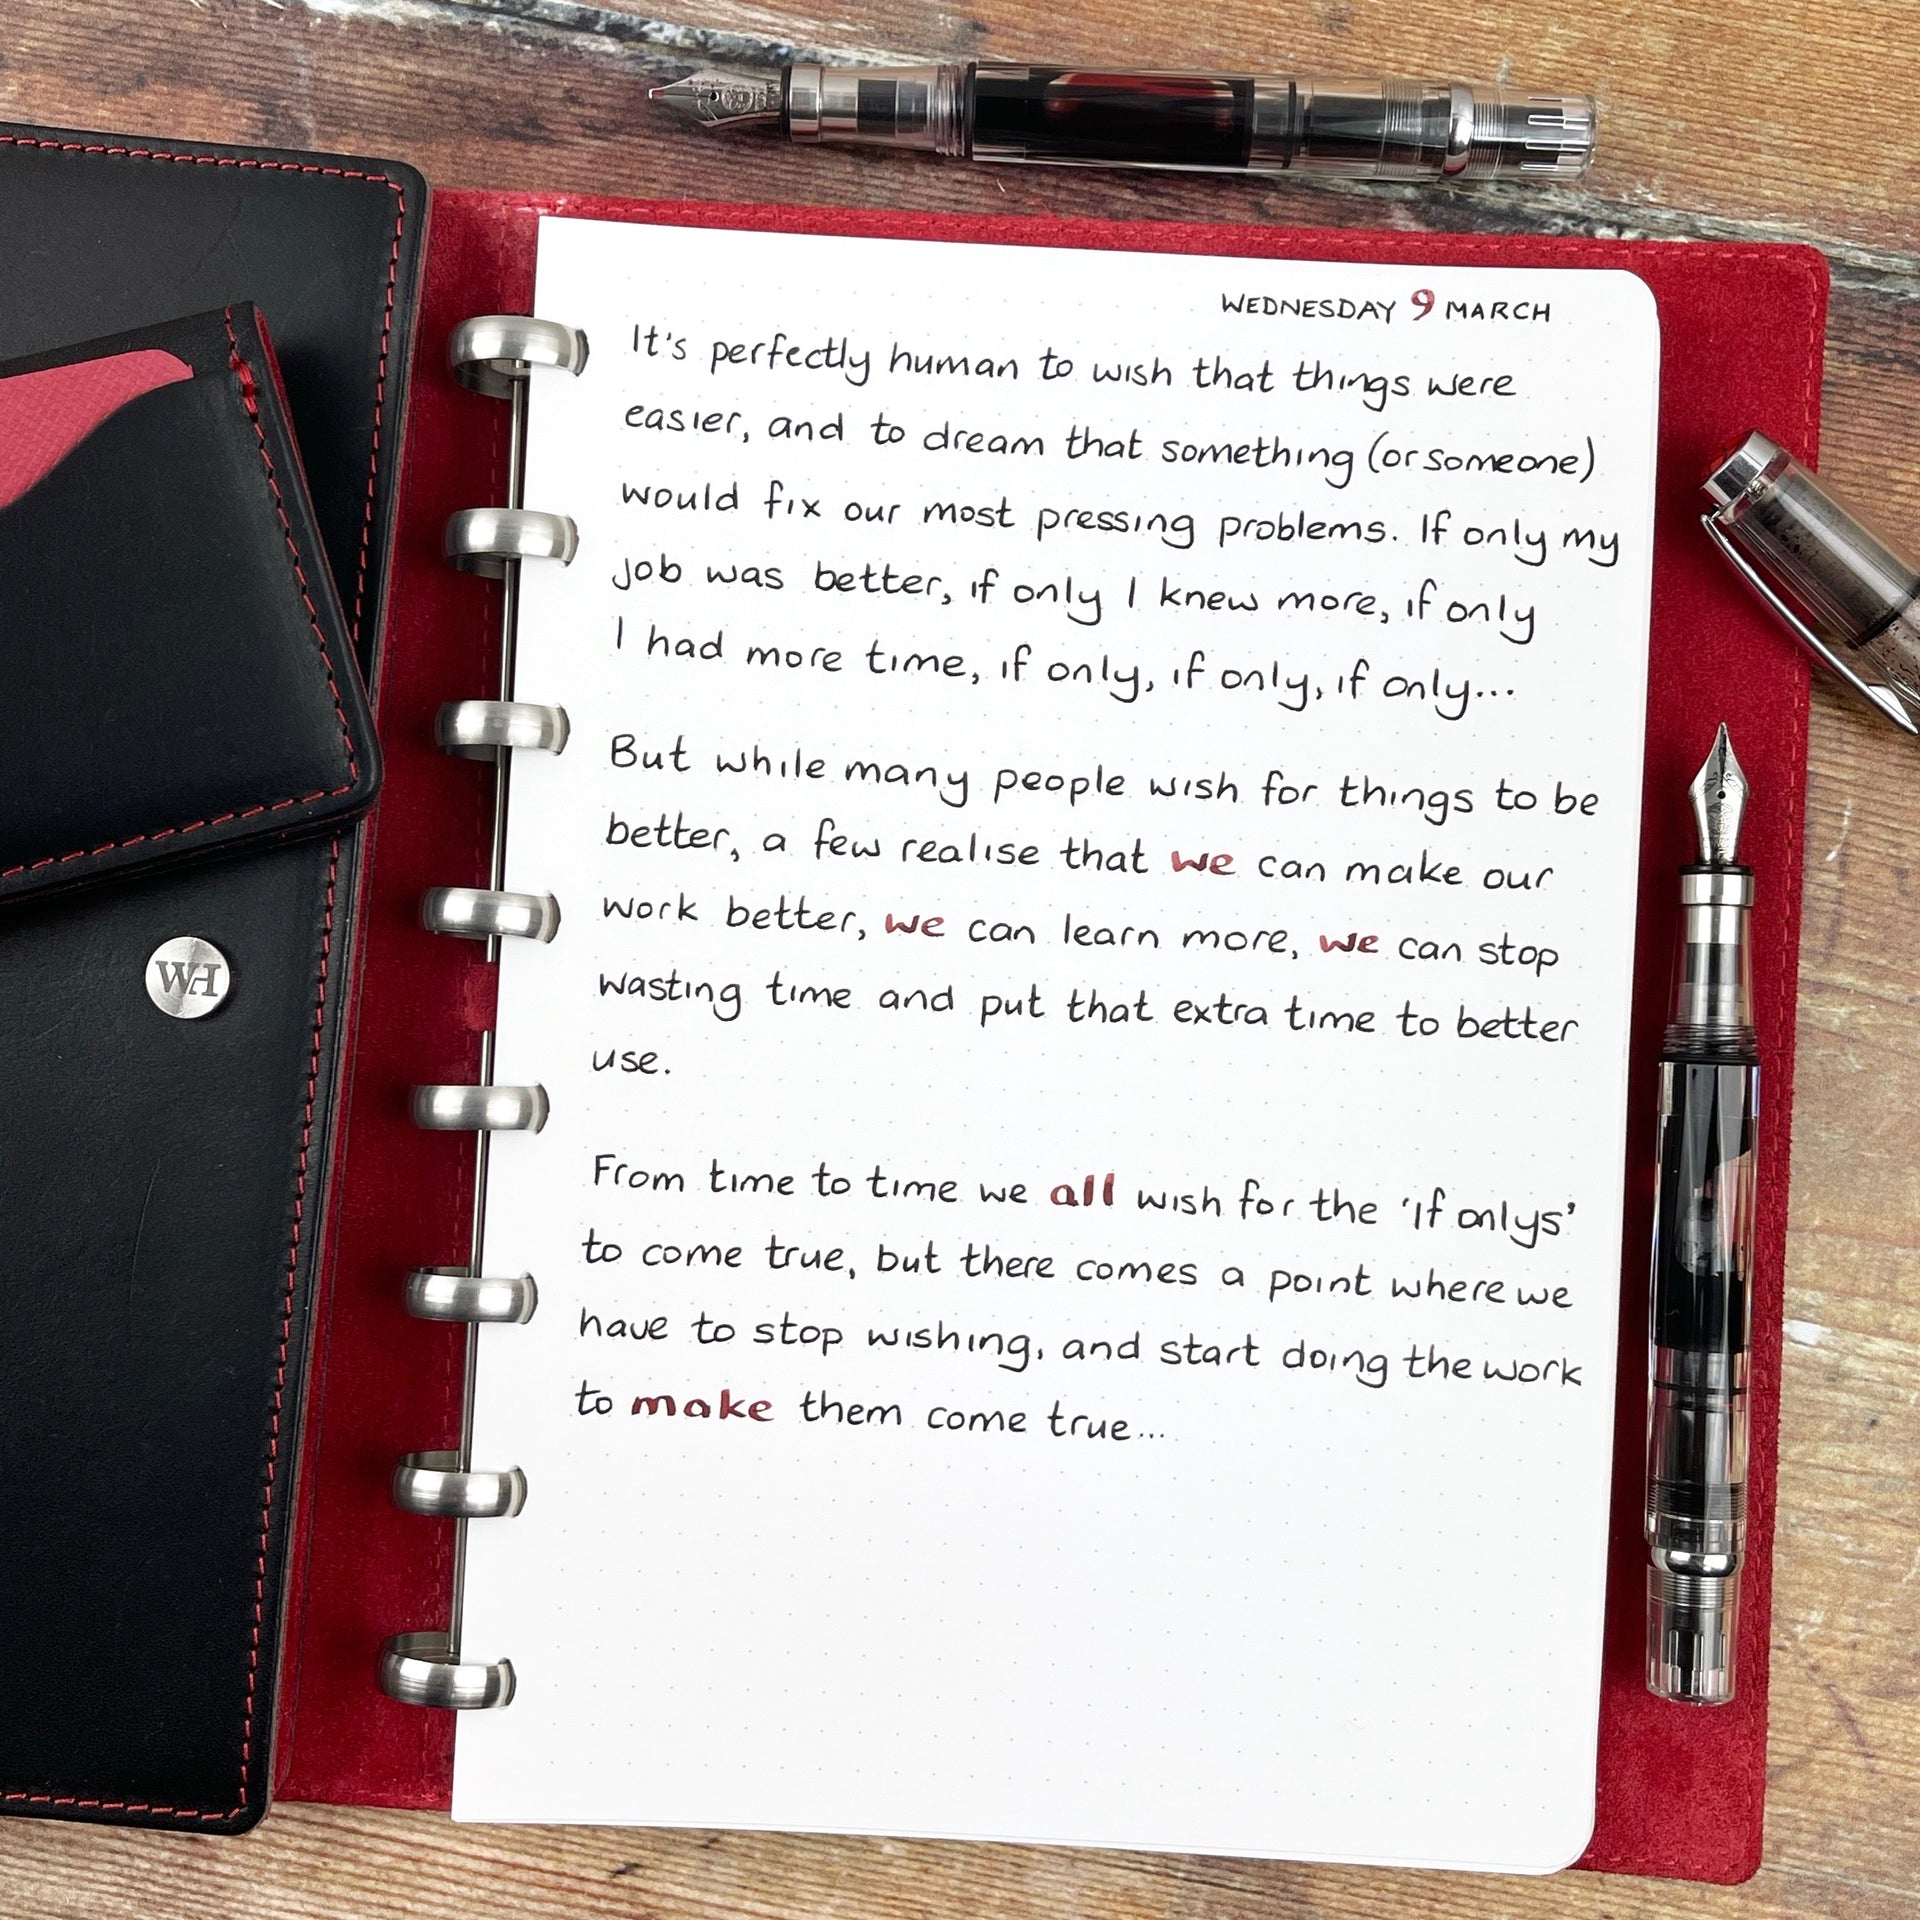 WEDNESDAY 9 MARCH
It's perfectly human to wish that things were
easier, and to dream that something (or someone)
would fix our most pressing problems. If only my
job was better, if only I knew more, if only
I had more time, if only, if only, if only...
But while many people wish for things to be
better, a few realise that we can make our
work better, we can learn more, we can stop
wasting time and put that extra time to better
use.
From time to time we all wish for the 'if onlys'
to come true, but there comes a point where we
have to stop wishing, and start doing the work
to make them come true...
WH